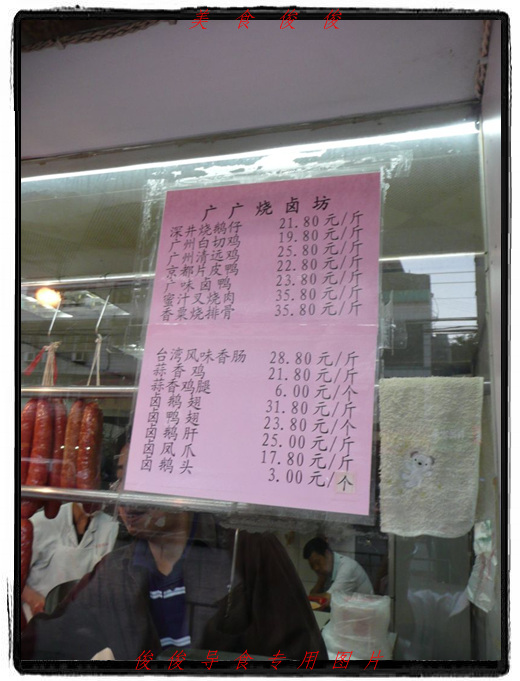 美食俊俊
广广烧卤坊
深井烧鹅仔 21.80元/斤
广州白切鸡 19.80元/斤
广州清远鸡 25.80元/斤
京都片皮鸭 22.80元/斤
广味卤鸭 23.80元/斤
蜜汁叉烧肉 35.80元/斤
香粟烧排骨 35.80元/斤
台湾风味香肠 28.80元/斤
蒜香鸡 21.80元/斤
蒜香鸡腿 6.00元/个
卤鹅翅 31.80元/斤
卤鸭翅 23.80元/个
卤鹅肝 25.00元/斤
卤凤爪 17.80元/斤
卤鹅头 3.00元/个
俊俊导食专用图片